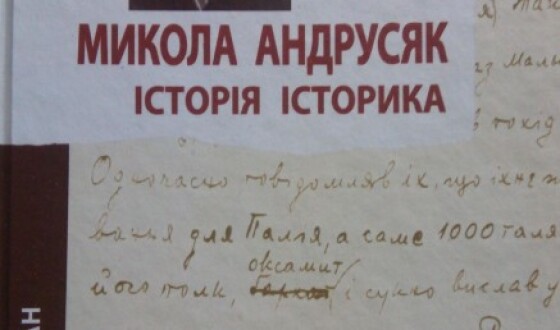 МИКОЛА АНДРУСЯК
ІСТОРІЯ ІСТОРИКА
в похід
Одночасно повідомляв їх, що їхнє
вання для Палія, а саме 1000 таля
оксамит
його полк, і сукно вислав у
АН